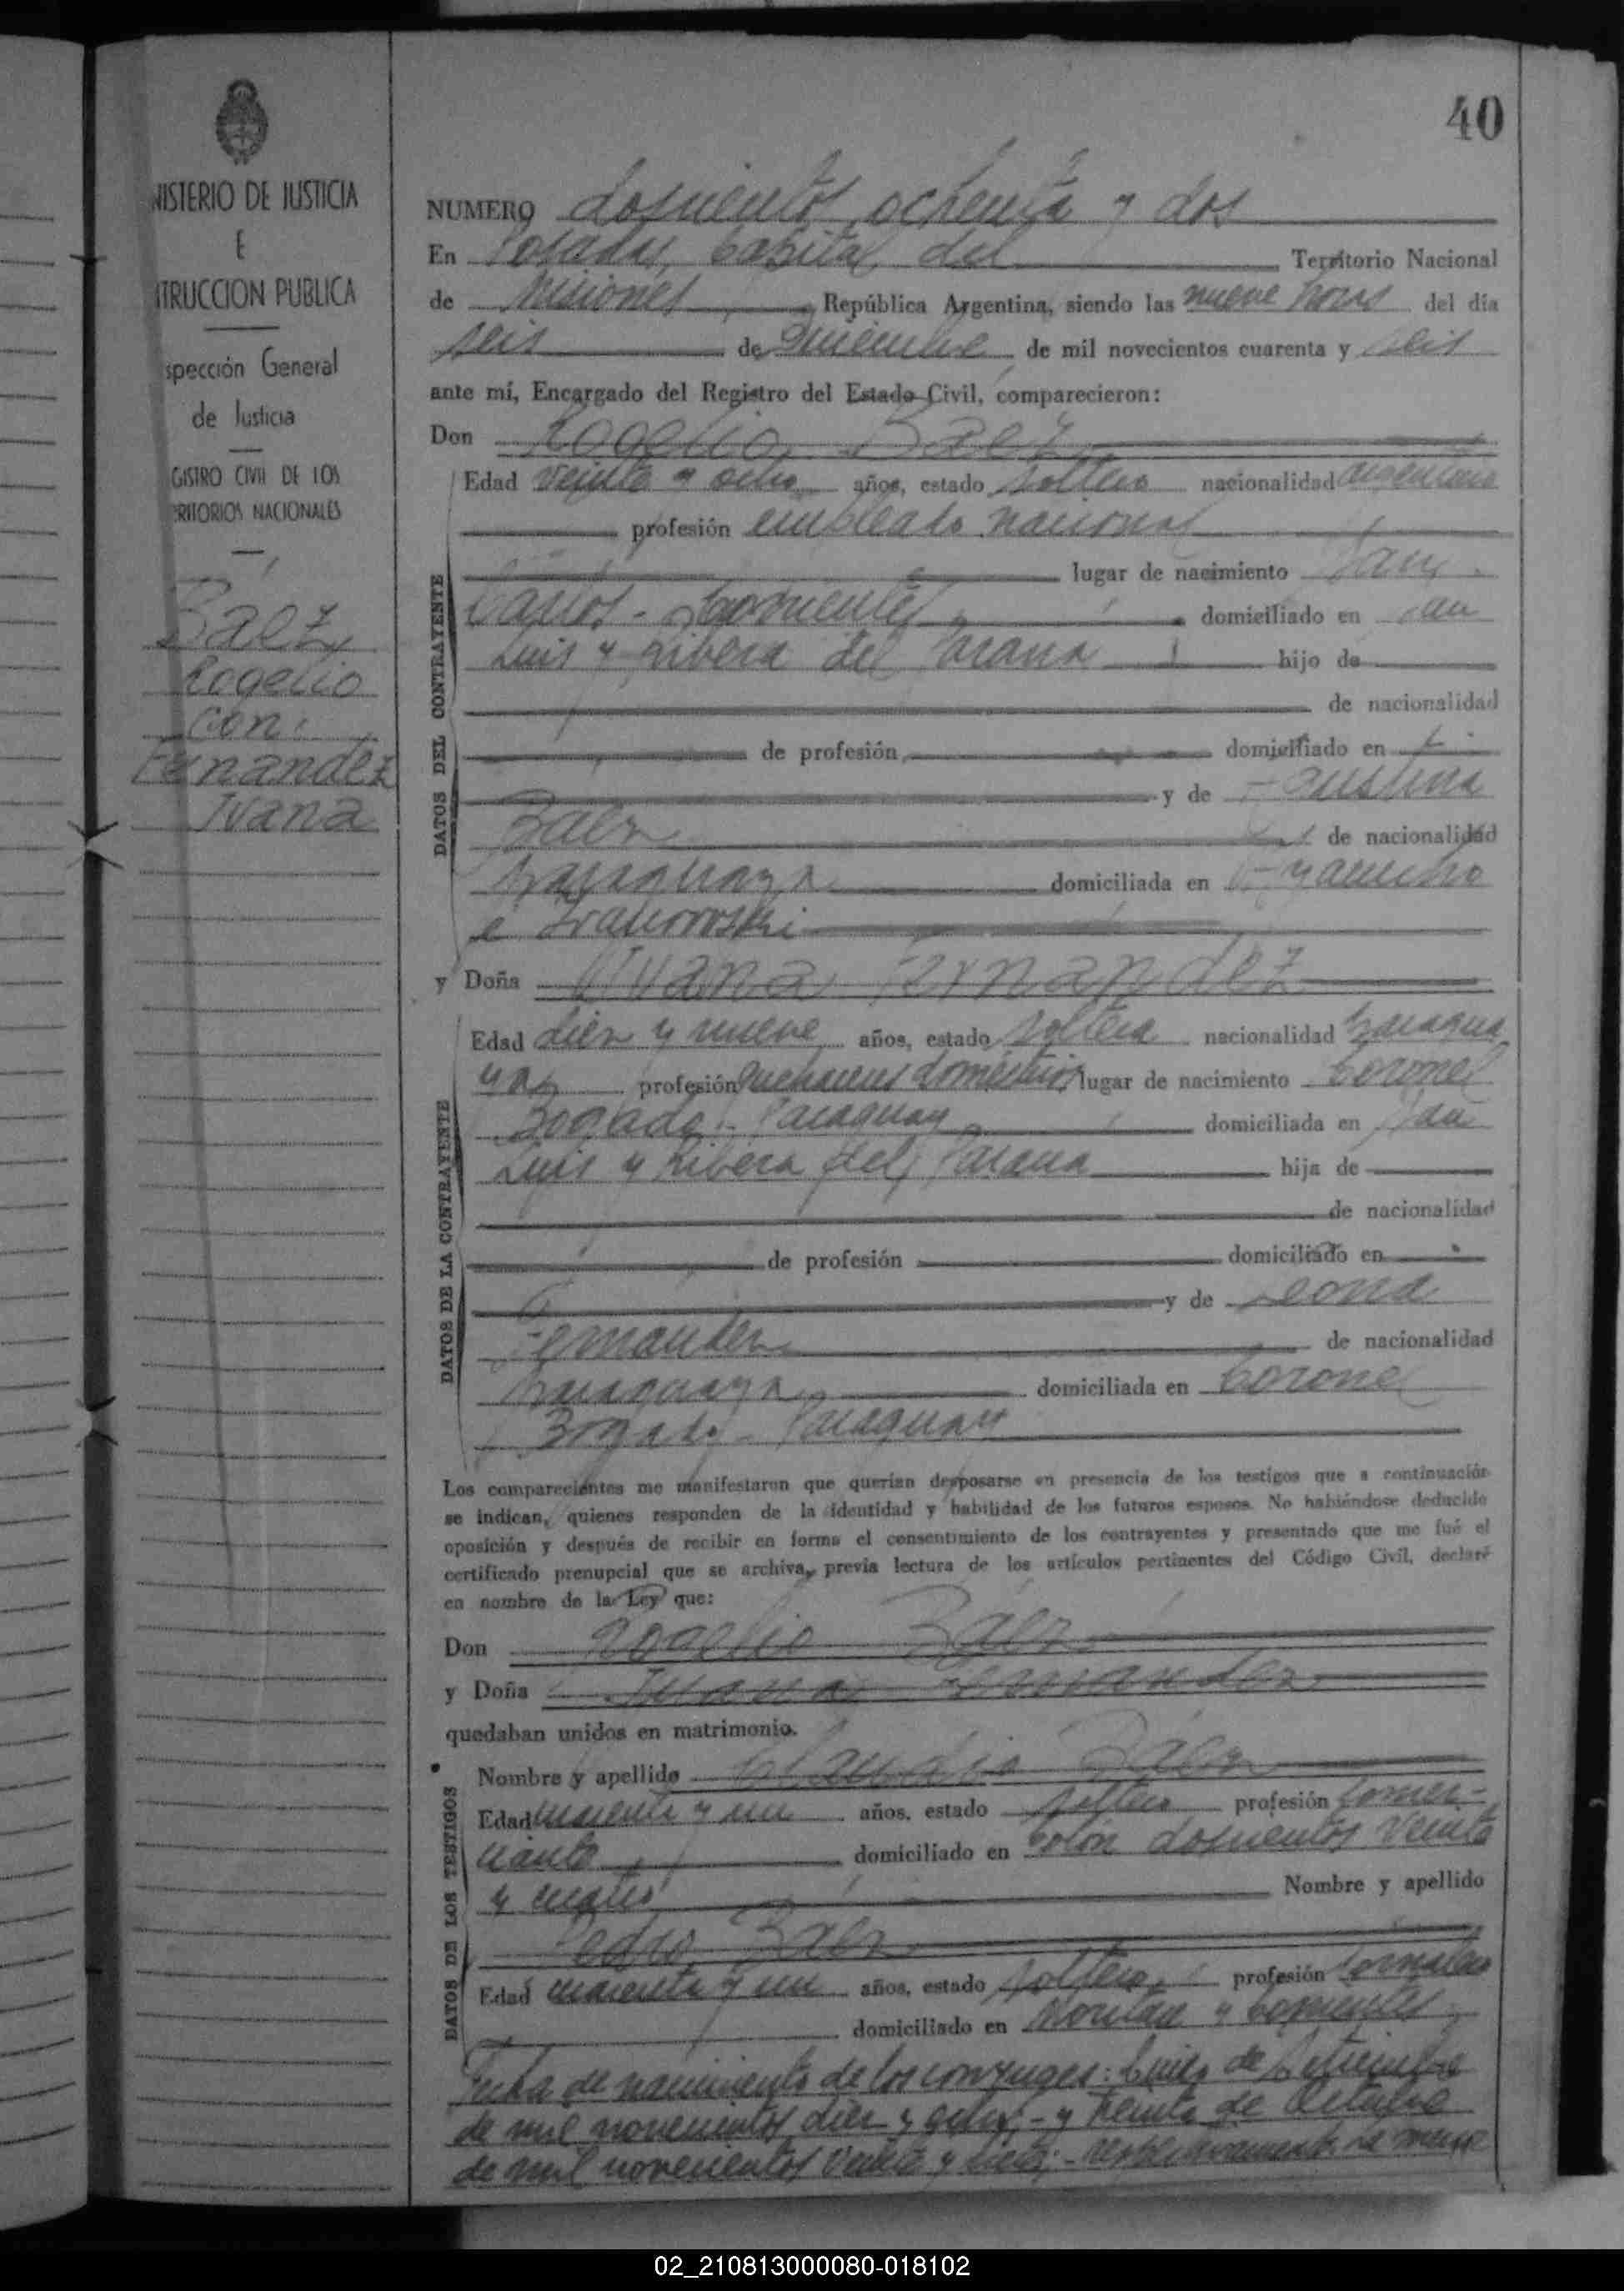 40
MINISTERIO DE JUSTICIA
E
INSTRUCCION PUBLICA
Inspección General
de Justicia
REGISTRO CIVIL DE LOS
TERRITORIOS NACIONALES
Baez
Rogelio
con:
Fernandez
Ivana
NUMERO doscientos ochenta y dos
En Posadas, Capital del Territorio Nacional
de Misiones, República Argentina, siendo las nueve horas del día
seis de Diciembre de mil novecientos cuarenta y seis
ante mí, Encargado del Registro del Estado Civil, comparecieron:
Don Rogelio Baez
DATOS DEL CONTRAYENTE
Edad veinte y ocho años, estado soltero nacionalidad argentino
profesión empleado nacional
lugar de nacimiento San
Carlos - Corrientes domiciliado en San
Luis y Ribera del Paraná hijo de
de nacionalidad
de profesión domiciliado en
y de Faustina
Baez de nacionalidad
paraguaya domiciliada en Ayacucho
e
y Doña Ivana Fernandez
DATOS DE LA CONTRAYENTE
Edad diez y nueve años, estado soltera nacionalidad paragua
ya profesión quehaceres domésticos lugar de nacimiento Coronel
Bogado - Paraguay domiciliada en San
Luis y Ribera del Paraná hija de
de nacionalidad
de profesión domiciliado en
y de Leona
Fernandez de nacionalidad
paraguaya domiciliada en Coronel
Bogado - Paraguay
Los comparecientes me manifestaron que querían desposarse en presencia de los testigos que a continuación
se indican, quienes responden de la identidad y habilidad de los futuros esposos. No habiéndose deducido
oposición y después de recibir en forma el consentimiento de los contrayentes y presentado que me fué el
certificado prenupcial que se archiva, previa lectura de los artículos pertinentes del Código Civil, declaré
en nombre de la Ley que:
Don Rogelio Baez
y Doña Ivana Fernandez
quedaban unidos en matrimonio.
DATOS DE LOS TESTIGOS
Nombre y apellido Claudio Baez
Edad cuarenta y un años, estado soltero profesión comer-
ciante domiciliado en Colón doscientos veinte
y cuatro Nombre y apellido
Pedro Baez
Edad cuarenta y un años, estado soltero, profesión jornalero
domiciliado en y Corrientes
Fecha de nacimiento de los conyuges: de Setiembre
de mil novecientos diez y ocho - y treinta de Octubre
de mil novecientos veinte y siete; - respectivamente
02_210813000080-018102